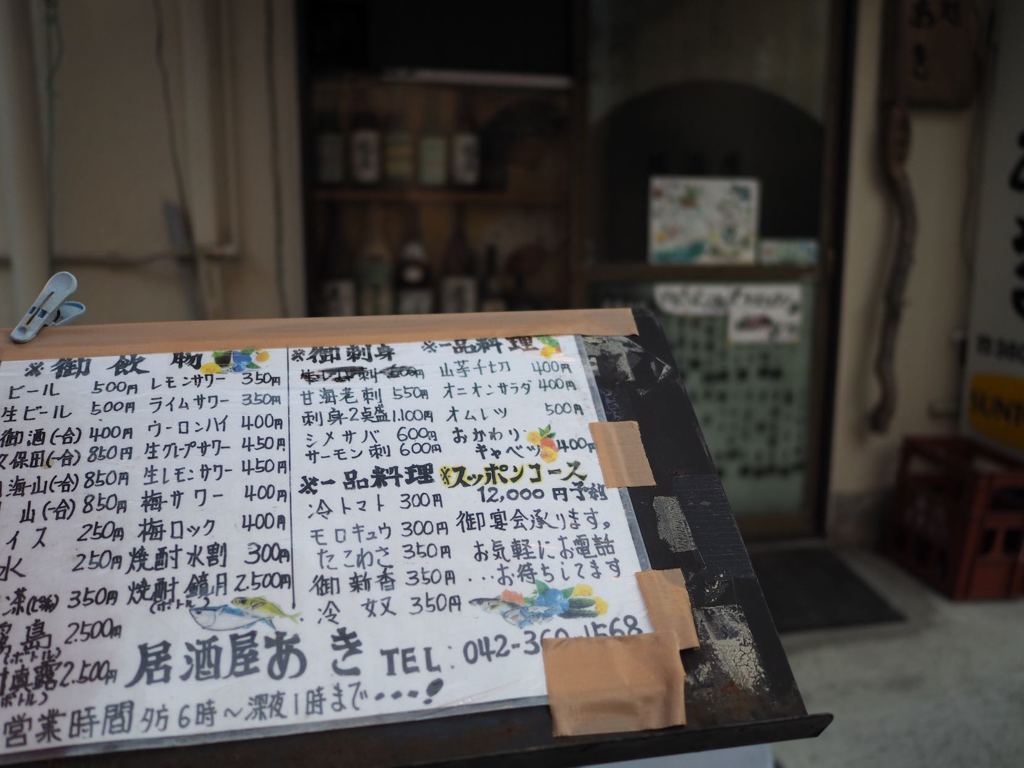 ※御飲物
ビール 500円
生ビール 500円
御酒(一合) 400円
久保田(一合) 850円
海山(一合) 850円
山(一合) 850円
イス 250円
水 250円
茶 350円
島 2.500円
(ボトル)
露 2.500円
(ボトル)
レモンサワー 350円
ライムサワー 350円
ウーロンハイ 400円
生グレープサワー 450円
生レモンサワー 450円
梅サワー 400円
梅ロック 400円
焼酎水割 300円
焼酎鏡月 2.500円
(ボトル)
※御刺身
甘海老刺 550円
刺身2点盛 1,100円
シメサバ 600円
サーモン刺 600円
※一品料理
冷トマト 300円
モロキュウ 300円
たこわさ 350円
御新香 350円
冷奴 350円
※一品料理
山芋千切 400円
オニオンサラダ 400円
オムレツ 500円
おかわり
キャベツ 400円
※スッポンコース
12,000円予約
御宴会承ります。
お気軽にお電話
...お待ちしてます
居酒屋あき TEL:042-360-1568
営業時間 夕方6時〜深夜1時まで・・・・!
あき